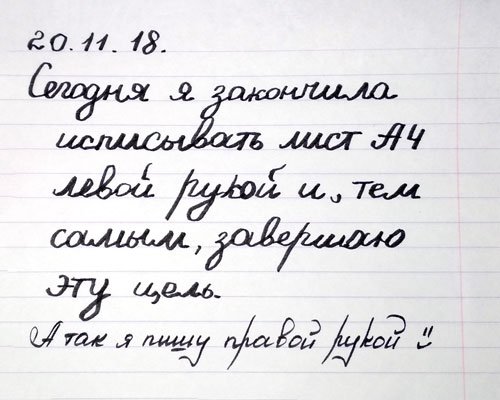 20.11.18.
Сегодня я закончила
исписывать лист А4
левой рукой и, тем
самым, завершаю
эту цель.
А так я пишу правой рукой :)